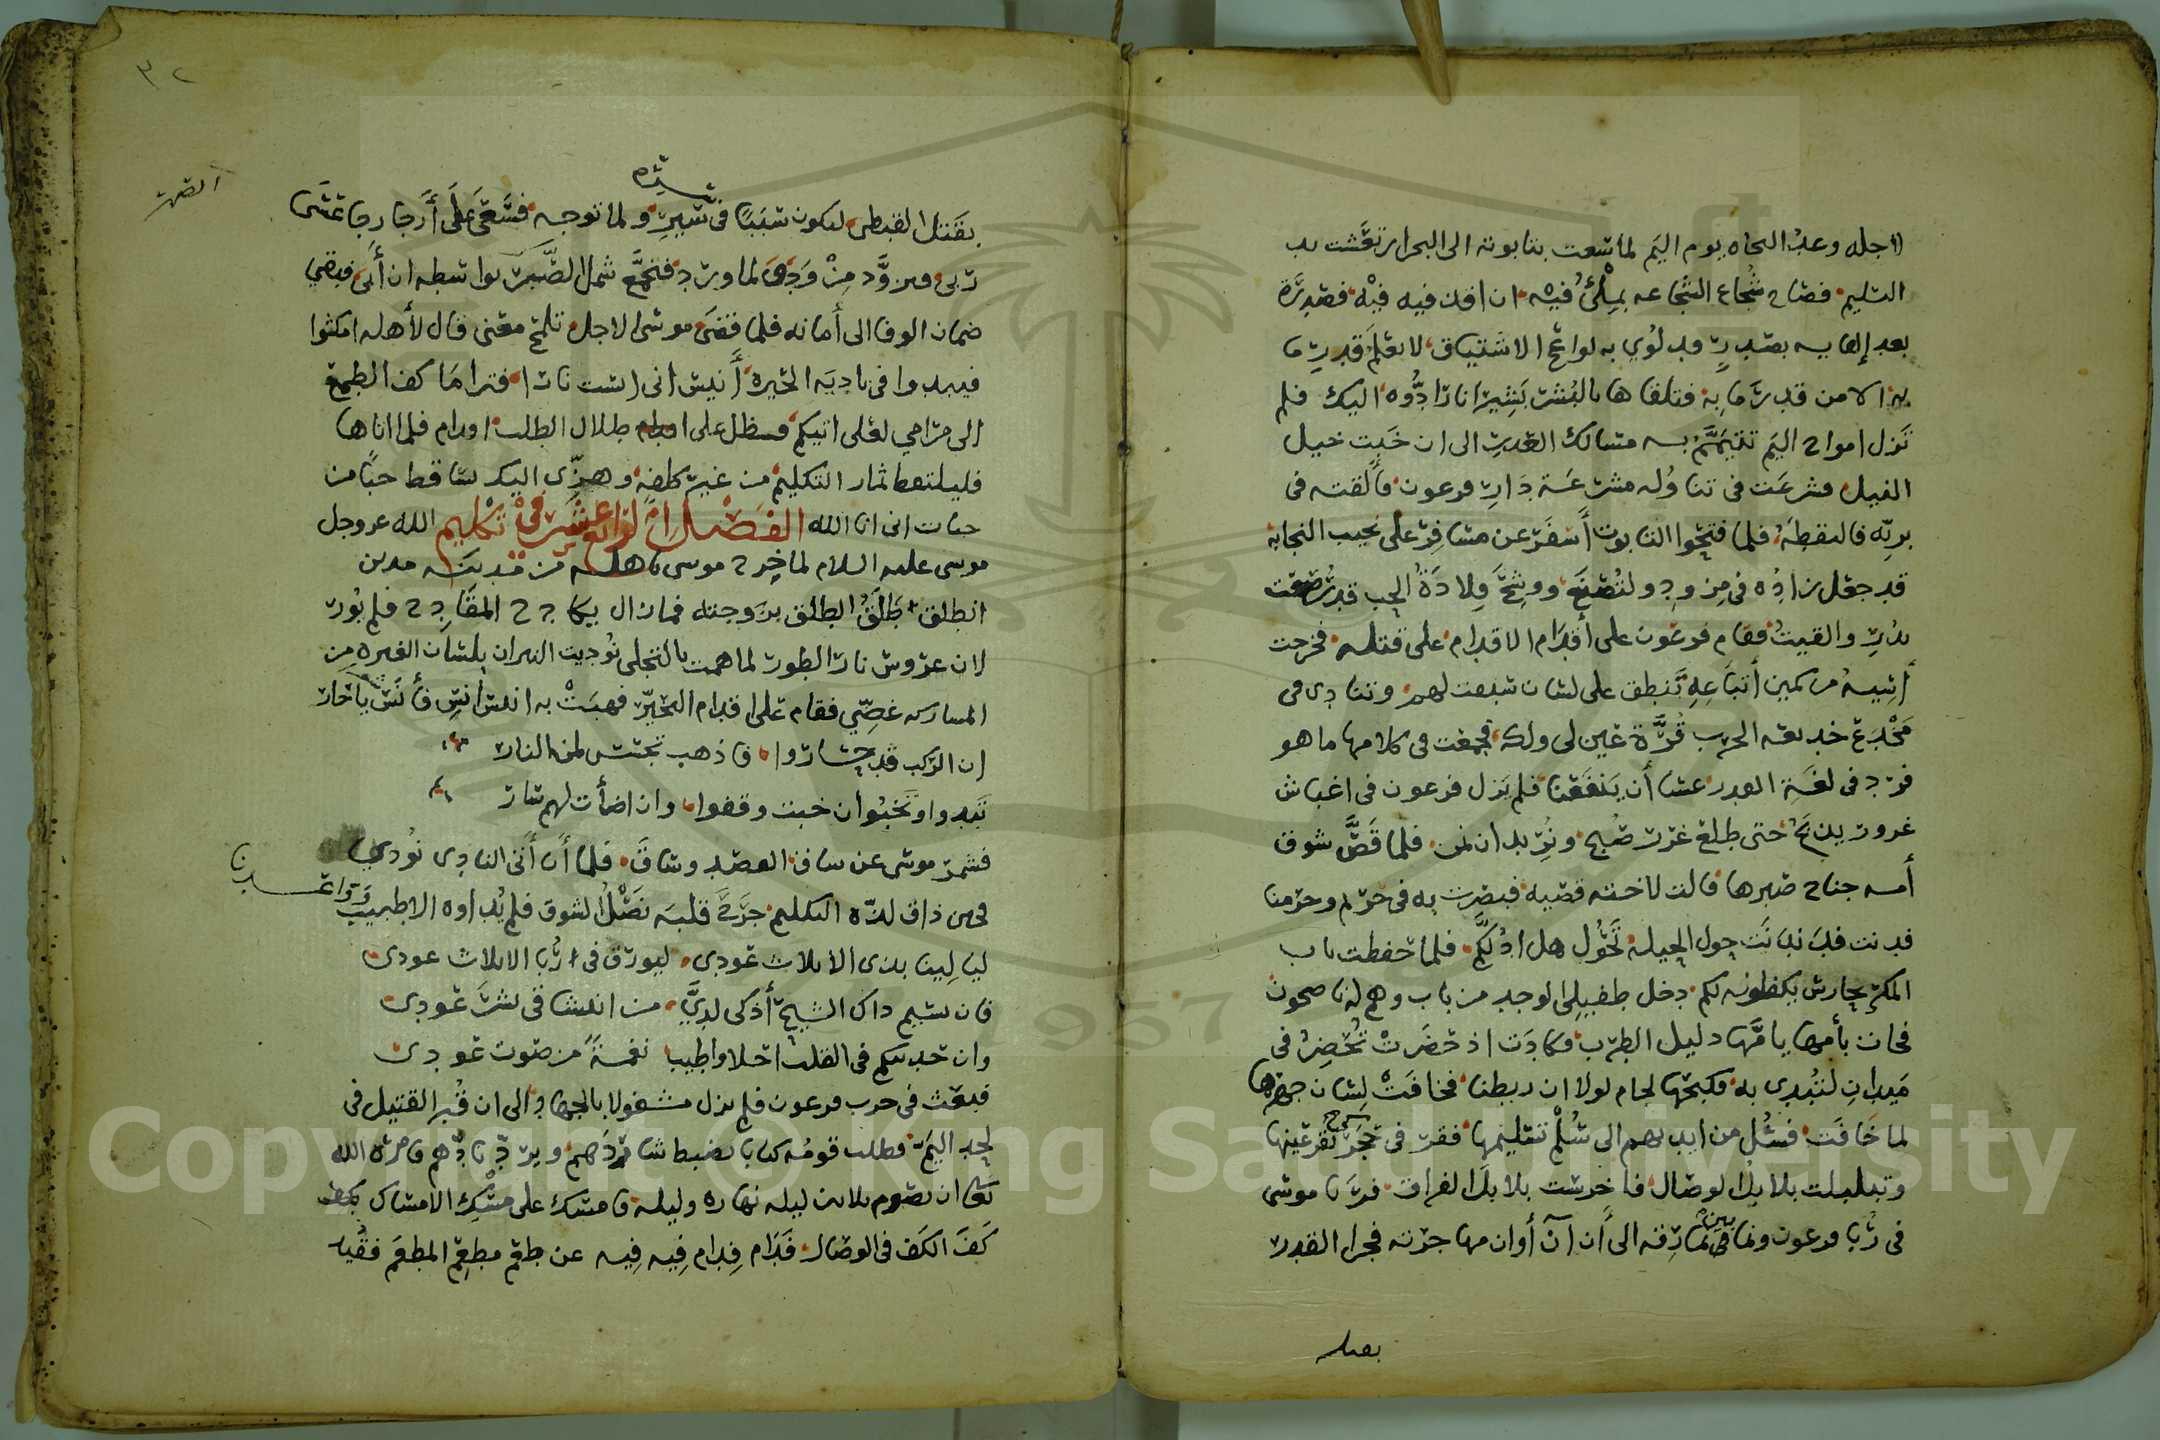 اجله وعدُ النجاه يوم اليَم لما سَعت بتابوته الى البحر ارتعَشت يد
التسليم فصاح شُجاع الشجاعه بمِلْئُ فِيْه ان اقذفيه فيْه فصَدرَّة
بعد إلقايه بصَدرٍ قد لُوي به لواعج الاشتياق لا يعْلَم قَدرِ ما
بهذا الا من قد رَمَا به فتلقاها بالبُشر بَشِير انا رادُّوه اليك فلم
تزل امواج اليَم تتيَمَّمُ به مسالك القدر الى ان خَبت خيل
النيل فشرعَت في تناوُله مشرعَة دَارِ فرعون فألقته في
بريّه فالتقطَهُ فلما فتحُوا التابوت أسْفَرَ عن مسَافِر على نجيب النجابة
قد جعل زادُه في مِزودِ ولتُصْنَعَ ووشِحَ قِلادَةُ الحب قد رُصعت
بدُرِّ والقيتُ فقام فرعون على أقدام الاقدام على قتله فخرجت
أسِيهُ من كمين أتبَاعِهِ تَنطق على لسان سَبقت لهم وتنادى فى
مَخْدَع خديعه الحرب قُرَّة عَين لى ولك فجمعت فى كلامها ما هو
فرد في لغَةِ القدر عسَا أن يَنفعَنا فلم يَزل فرعون في اغباش
غرور يذبَحُ حتى طلع غرر صُبح ونُريد ان نمن فلما قَصَّ شوق
أمه جناح صَبرها قالت لاخته قصّيه فبصُرت به في حَرَم وحَرمنا
فدنت فدَندَنَت حول الحيله تَحُول هل ادُلكُم فلما حفظت باب
المكر بحارس يكفلونه لكم دخل طفيلى الوجد من باب وهم له ناصحون
فجات بأمها يامّها دليل الطرَب وكادَت اذ حَضَرتْ تُحَضِرُ في
مَيدان لتُبدى به فكبحَها لجام لولا ان ربطنا فخافَتْ لِسَان جهْرها
لما خَافَت فسُلّ من ايديهم الى سُلْم تسْليمها فقَر في حَجَر تقَر عَينها
سرح
وتبلبلت بلابلُ الوصَال فأخرسَت بلابلَ الفراق فربَا موسى
في رُبا فرعون ونما بين نمارقِه الى ان آن أوان مهاجرته فجرا القدر
بقتل
٣٢
القهر
سيره
بقَتل القبطى ليكون سَبَبًا فى سَيرِ ولما توجه فسَعَى عَلَى أَرجا رجا عسَى
ربى وتزوَّد مِنْ وَجَدَ لما ورَد فتجمَّع شمل الصَّبر بواسطه ان أَبى فبقى
ضمان الوفا الى أمانه فلما قضَى موسَى الاجل تلمح معَنى قال لأهله امكثوا
فيبدوا فى باديَه الحَيرة أَنيس انى انست نارًا فترامَا كف الطمع
الى مَرامي لعَلى اتيكم فسظل على اطلال الطلب اورام فلما اتاها
فليلتقط ثمار التكليم من غير كلفة وهزّى اليك تساقط حبًا من
حبات انى انا الله الفَصْل الرابع عشَر فى تكليم الله عز وجل
موسى عليه السلام لما خرج موسى باهله من مَدينَه مدين
انطلق طَلَقُ الطلق بزَوجته فما زال يكادح المقَادِح فلم تُور
لان عرُوس نار الطور لما همت بالتجلى نُوديت النيران بلسَان الغيره من
المشاركه غضّى فقام عَلى اقدام التحيّر فهبَتْ به انيس آنسَ فأنَسَ يا حَار
ان الركب قد حَارُوا فاذهب تجَسَس لمن النار
تَبدوا وتَخبُوا ان خبت وقفوا وان اضأت لهم سَار
فشمرّ موسَى عن سَاق القصد وسَاق فلما أتَى النادي نُودي
فحين ذاق لذّه التكليم جرَّحَ قلبَه نَصْلُ الشوق فلم يُداوه الا طبيب
وَوَاعَـــدنا
ليالِينا بذى الاثلات عُودى ليورق في رُبا الاثلات عودى
فان نسَيم ذاك الشيح أذكى لديَّ من انفسَا فى نشْر عُودى
وان حديثكم فى القلب احلا واطيب نغمةً من صَوت عُودى
فبعث في حرب فرعون فلم يزل مشغولا بالجهاد الى ان قُبر القتيل فى
لحد اليَمّ فطلب قومُه كتابا يضبط شاردَهم ويرد نادَّهم فامرَه الله
تعَالى ان يصُوم ثلاثين ليله نهاره وليله فامسَك على مسْك الامسَاك بكف
كَفَّ الكَف فى الوصَال فَدَام فِدام فِيه فيه عن طعْم مطعم المطعَم فقُيد